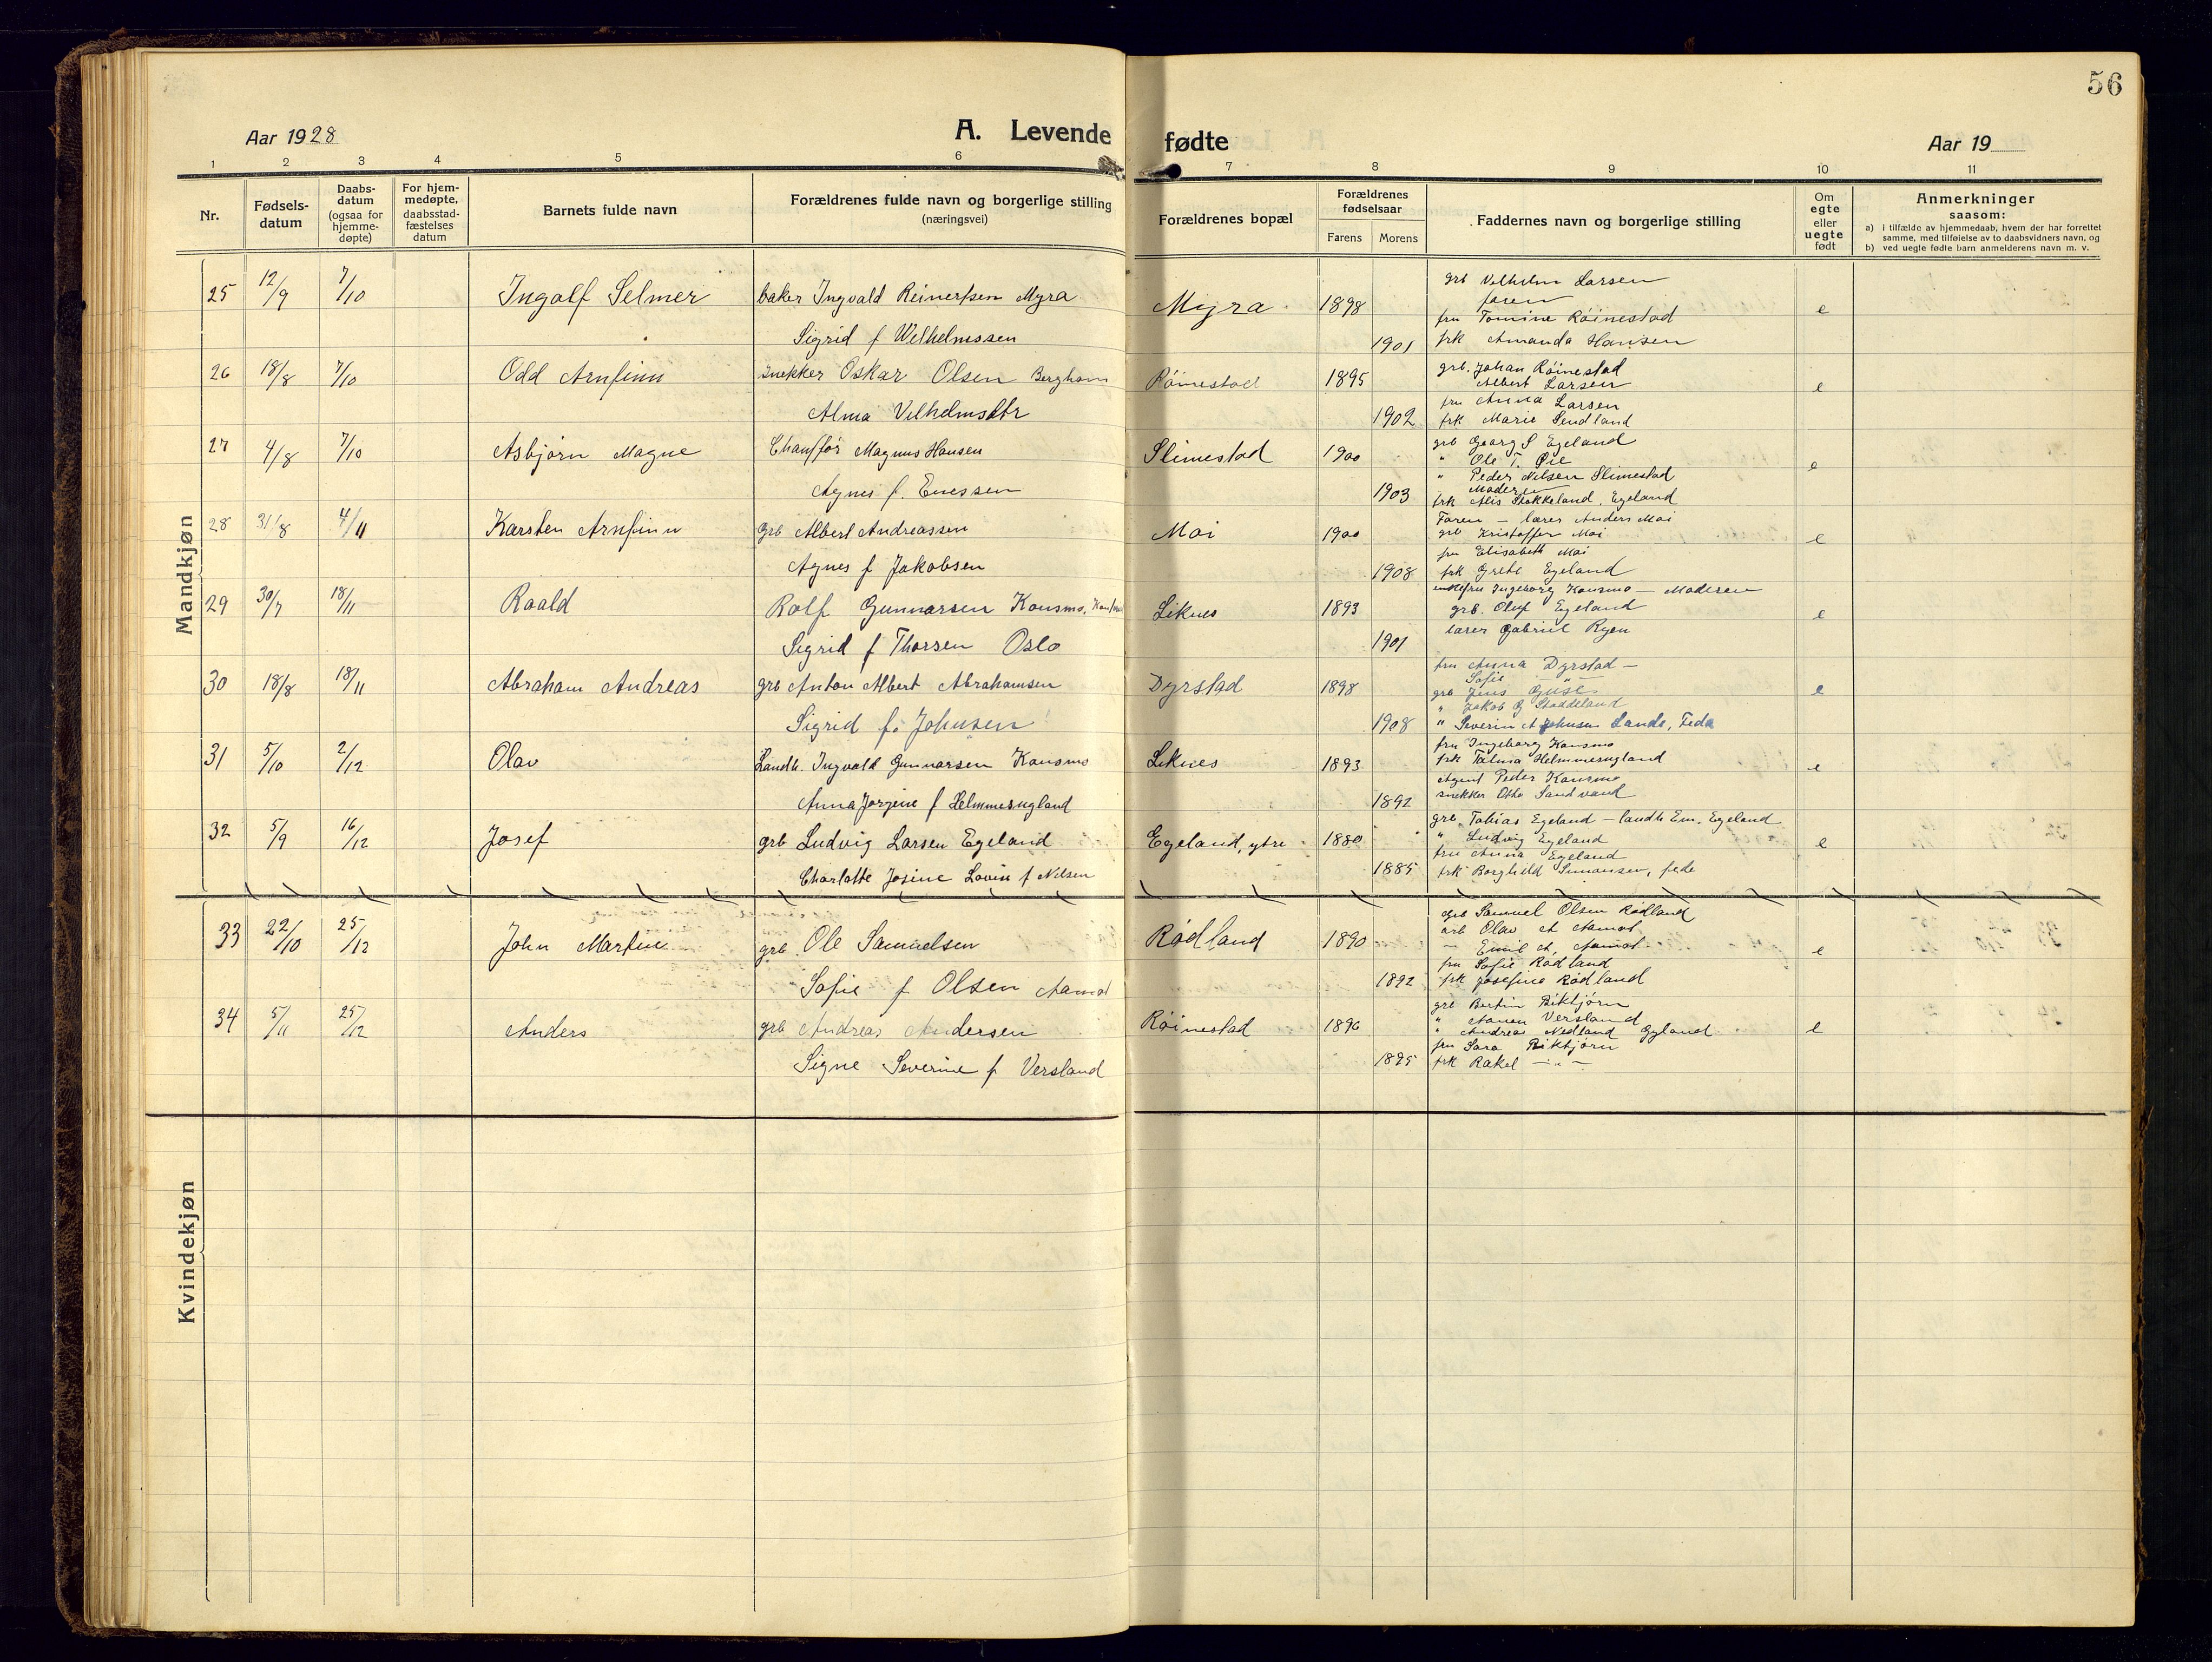 56
Aar 1928
A. Levende fødte
Aar 19
1 2 3 4 5 6 7 8 9 10 11
Nr.
Fødsels-
datum
Daabs-
datum
(ogsaa for
hjemme-
døpte)
For hjem-
medøpte,
daabsstad-
fæstelses
datum
Barnets fulde navn
Forældrenes fulde navn og borgerlige stilling
(næringsvei)
Forældrenes bopæl
Forældrenes
fødselsaar
Farens Morens
Faddernes navn og borgerlige stilling
Om
egte
eller
uegte
født
Anmerkninger
saasom:
a) i tilfælde av hjemmedaab, hvem der har forrettet
samme, med tilføielse av to daabsvidners navn, og
b) ved uegte fødte barn anmelderens navn m. v.
Mandkjøn
25 12/9 7/10 Ingolf Selmer
baker Ingvald Reinertsen Myra
Sigrid f Wilhelmssen
Myra 1898
1901
grb Vilhelm Larsen
faren
fru Tomine Röinestad
frk Amanda Hansen
e
26 18/8 7/10 Odd Arnfinn
snekker Oskar Olsen Bergham
Alma Vilhelmsdtr
Röinestad 1895
1902
grb. Johan Röinestad
Albert Larsen
fru Anna Larsen
frk Marie Sendland
e
27 4/8 7/10 Asbjørn Magne
Chauffør Magnus Hansen
Agnes f. Enessen
Slimestad 1900
1903
grb Georg S Egeland
" Ole T. Øie
" Peder Nilsen Slimestad
Moderen
frk Alis Stakkeland, Egeland
e
28 31/8 4/11 Karsten Arnfinn
grb Albert Andreassen
Agnes f Jakobsen
Moi 1900
1908
Faren – lærer Anders Moi
grb Kristoffer Moi
fru Elisabeth Moi
frk Grete Egeland
e
29 30/7 18/11 Roald
Rolf Gunnarsen Konsmo,
Sigrid f Thorsen Oslo
Liknes 1893
1901
Ingeborg Konsmo – Moderen
grb. Oluf Egeland
lærer Gabriel Ryen
e
30 18/8 18/11 Abraham Andreas
grb Anton Albert Abrahamsen
Sigrid f. Johnsen
Dyrstad 1898
1908
fru Anna Dyrstad –
Sofie – " –
grb Jens Guse
" Jakob G Staddeland
" Severin A Johnsen Lande, Feda
e
31 5/10 2/12 Olav
Landh. Ingvald Gunnarsen Konsmo
Anna Jorgine f Helmmesugland
Liknes 1893
1892
fru Ingeborg Konsmo
frk Talma Helmmesugland
Agent Peder Konsmo
snekker Otto Sandvand
e
32 5/9 16/12 Josef
grb Ludvig Larsen Egeland
Charlotte Josine Lovise f Nilsen
Egeland, ytre 1880
1885
grb Tobias Egeland – landh Em. Egeland
" Ludvig Egeland
fru Anna Egeland
frk Borghild Simonsen, feda
e
33 22/10 25/12 John Martin
grb. Ole Samuelsen
Sofie f Olsen Aamot
Rødland 1890
1892
grb Samuel Olsen Rødland
arb Olav A Aamot
– Emil A. Aamot
fru Sofie Rødland
frk Josefine Rødland
e
34 5/11 25/12 Anders
grb Andreas Andersen
Signe Severine f Versland
Röinestad 1896
1895
grb Bertin Birktjørn
" Aanen Versland
" Andreas Nedland Gyland
fru Sara Birktjørn
frk Rakel – " –
e
Kvindekjøn